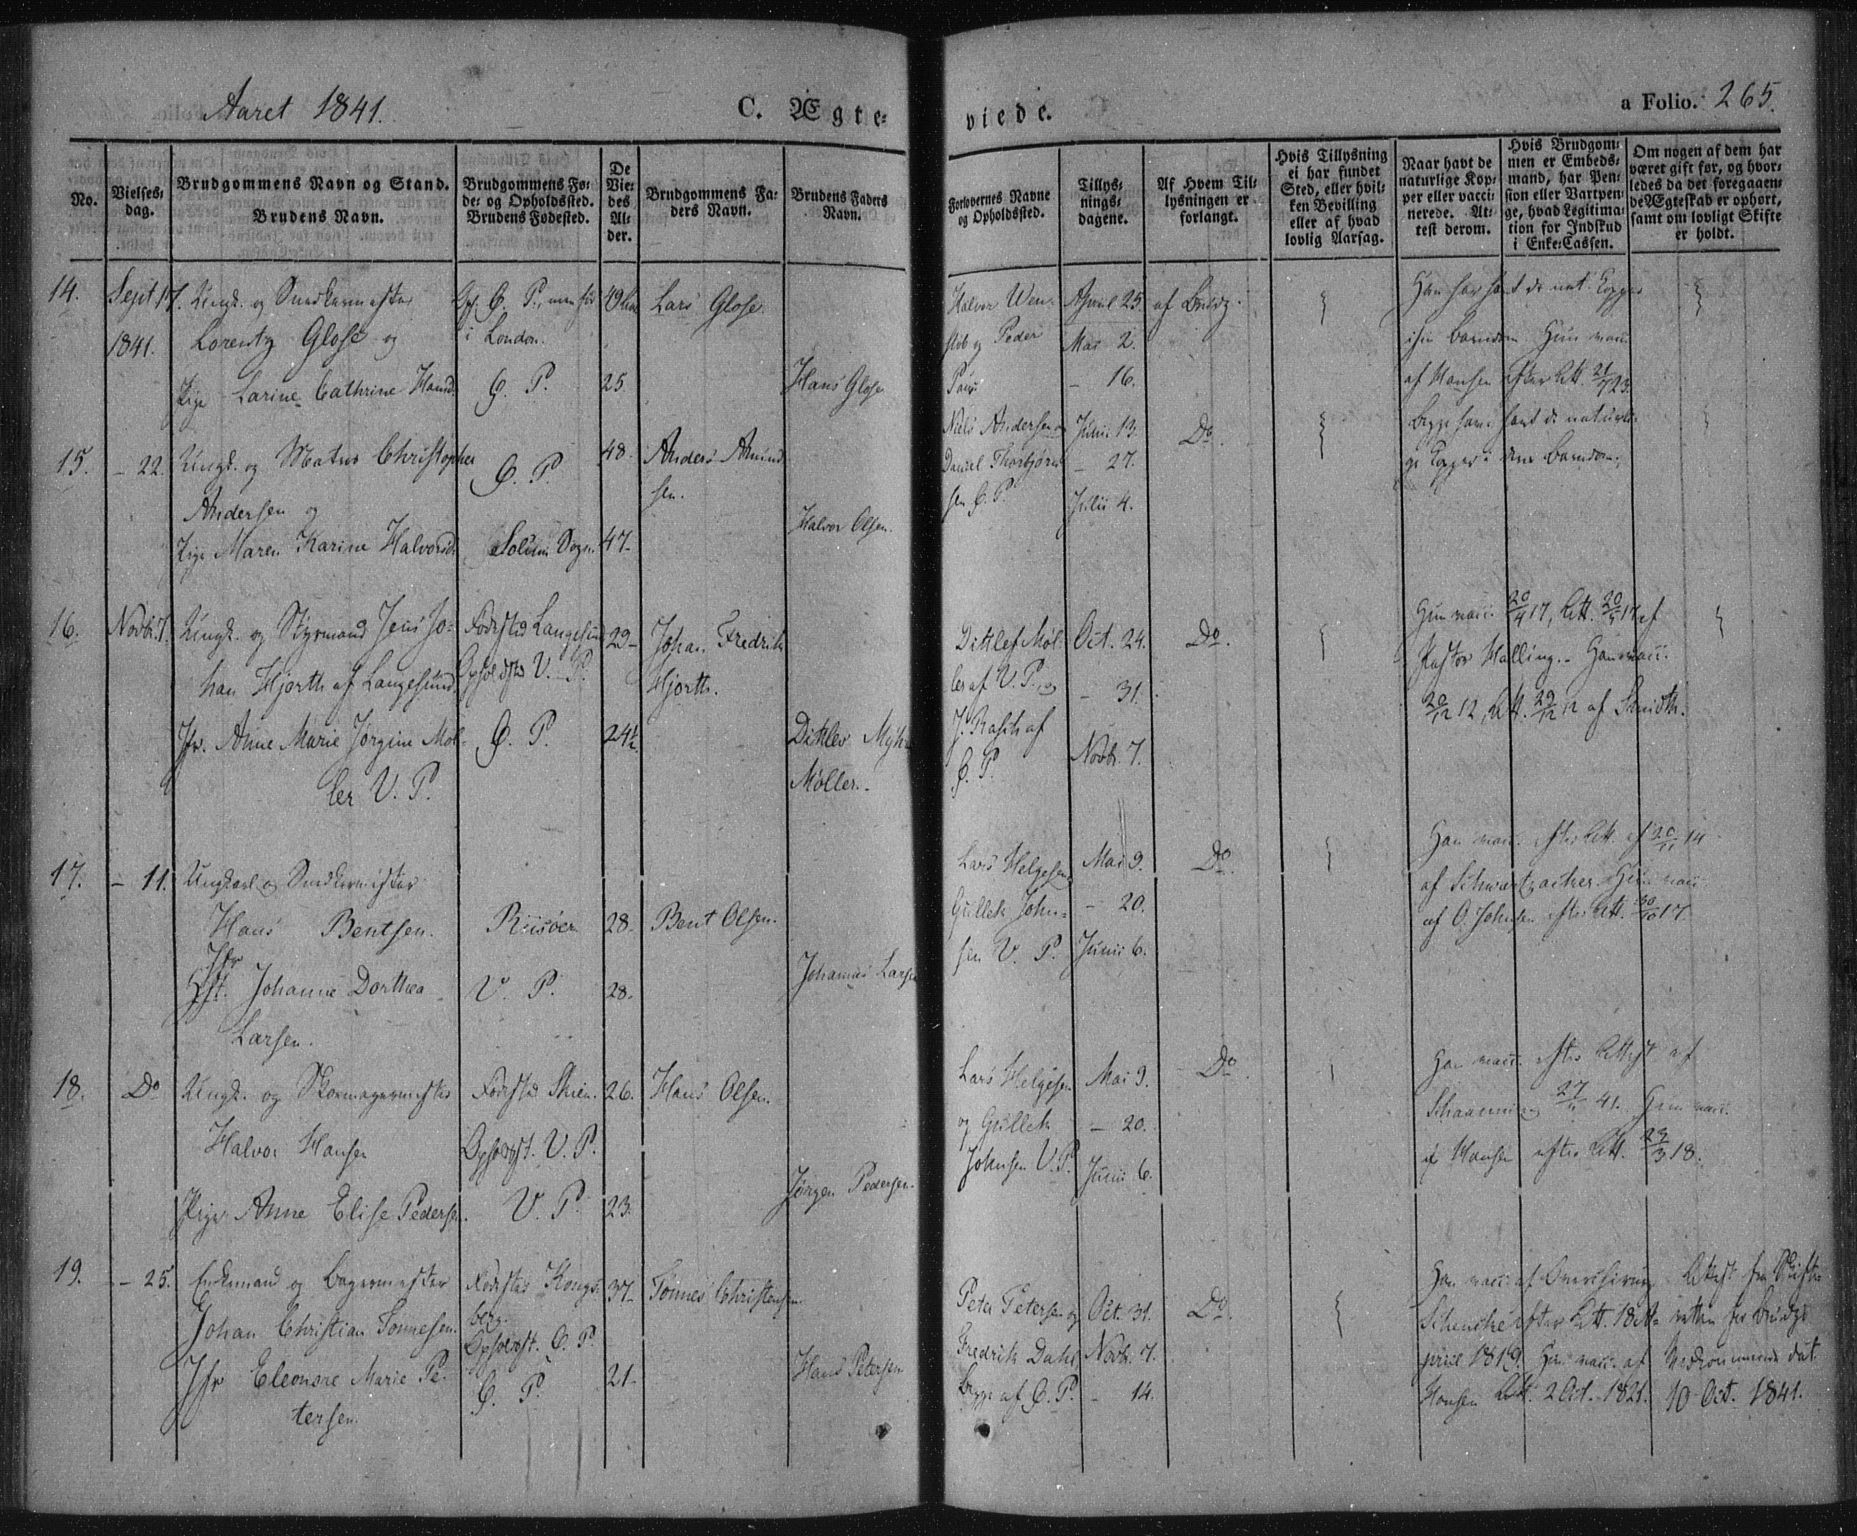 Aaret 1841.
C. Ægte-
viede.
a Folio. 265.
No.
Vielses-
dag.
Brudgommens Navn og Stand.
Brudens Navn.
Brudgommens Fø-
de- og Opholdssted.
Brudens Fødested.
De
Vie-
des
Al-
der.
Brudgommens Fa-
ders Navn.
Brudens Faders
Navn.
Forlovernes Navne
og Opholdssted.
Tillys-
nings-
dagene.
Af Hvem Til-
lysningen er
forlangt.
Hvis Tillysning
ei har fundet
Sted, eller hvil-
ken Bevilling
eller af hvad
lovlig Aarsag.
Naar havt de
naturlige Kop-
per eller vacci-
nerede. At-
test derom.
Hvis Brudgom-
men er Embeds-
mand, har Pen-
sion eller Vartpen-
ge, hvad Legitima-
tion for Indskud
i Enke-Cassen.
Om nogen af dem har
været gift før, og hvor-
ledes da det foregaaen-
de Ægteskab er ophørt,
samt om lovligt Skifte
er holdt.
14.
Sept. 17.
1841.
Ungk. og Snedkermester
Lorentz Glose og
Pige Larine Cathrine Hansd.
i London.
49
Lars Glose.
Ø. P.
25
Hans Glose
Halvor Wen-
støb og Peder
April 25.
Mai 2.
- 16.
af Brudg.
Han har havt de nat. Kopper
i sin Barndom. Hun vacc.
af Hansen efter Att. 21/7 23.
15.
- 22.
Ungk. og Matros Christopher
Andersen og
Pige Maren Karine Halvorsd.
Ø. P.
Solum Sogn.
48.
47-
Anders Amund-
sen.
Halvor Olsen.
Niels Andersen og
Daniel Thorbjørn-
sen Ø. P.
Junii 13.
- 27.
Julii 4.
Do
Begge have havt de naturli-
ge Kopper i deres Barndom.
16.
Novbr. 7.
Ungk. og Styrmand Jens Jo-
han Hjorth af Langesund.
Jfr. Anne Marie Jørgine Møl-
ler V. P.
Fødested Langesund
Opholdsted V. P.
Ø. P.
29-
24½
Johan Fredrik
Hjorth.
Ditlev
Møller.
Ditlef Møl-
ler af V. P. og
J. Rasch af
Ø. P.
Oct. 24.
- 31.
Novbr. 7.
Do.
Hun vacc. 20/4 17, Att. 20/5 17 af
Pastor Halling. - Han vacc.
20/12 12, Att. 29/12 12 af Smidth.
17.
- 11.
Ungkarl og Snedkermester
Hans Bentsen.
Jfr
Johanne Dorthea
Larsen.
Riisøer
V. P.
28.
28.
Bent Olsen.
Johannes Larsen
Lars Helgesen
Gullek John-
sen V. P.
Mai 9.
- 20.
Junii 6.
Do
Han vacc. efter Att. af 20/11 14
af Schwartzacher. Hun vacc.
af O. Johnsen efter Att. 30/10 17.
18.
Do
Ungk. og Skomagermester
Halvor Hansen
Pige Anne Elise Peders.
Fødested Skien.
Opholdst. V. P.
V. P.
26.
23.
Hans Olsen.
Jørgen Pedersen.
Lars Helgesen
og Gullek
Johnsen V. P.
Mai 9.
- 20.
Junii 6.
Do
Han vacc. efter Attest af
27/11 41. Hun vacc.
af Hansen efter Att. 23/3 18.
19.
- 25.
Enkemand og Bagermester
Johan Christian Tønnesen.
Jfr Eleonore Marie Pe-
tersen.
Fødested Kongs-
berg.
Opholdst. Ø. P.
Ø. P.
37-
21-
Tønnes Christensen
Hans Petersen
Peter Petersen og
Fredrik Dahl
begge af Ø. P.
Oct. 31.
Novbr. 7.
- 14.
Do
Han vacc. af Overchirurg
efter Att. 18de
april 1819. Hun vacc. af
Hansen Att. 2 Oct. 1821.
Attest fra Skifte-
retten for Brudgs
Vedkommende dat.
10 Oct. 1841.